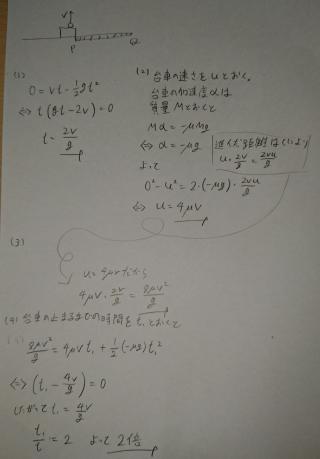 V
P
Q
(1)
0 = vt - 1/2 gt²
⇔ t(gt-2v) = 0
t = 2v/g
(2) 台車の速さを u とおく。
台車の加速度 α は
質量 M とおくと
Mα = -μMg
⇔ α = -μg
u・2v/g = 2vu/g
よって
0² - u² = 2・(-μg)・2vu/g
⇔ u = 4μv
(3)
u = 4μv だから
4μv・2v/g = 8μv²/g
(4) 台車の止まるまでの時間を t₁ とおくと
8μv²/g = 4μv t₁ + 1/2 (-μg) t₁²
⇔ (t₁ - 4v/g) = 0
したがって t₁ = 4v/g
t₁/t = 2 よって 2倍